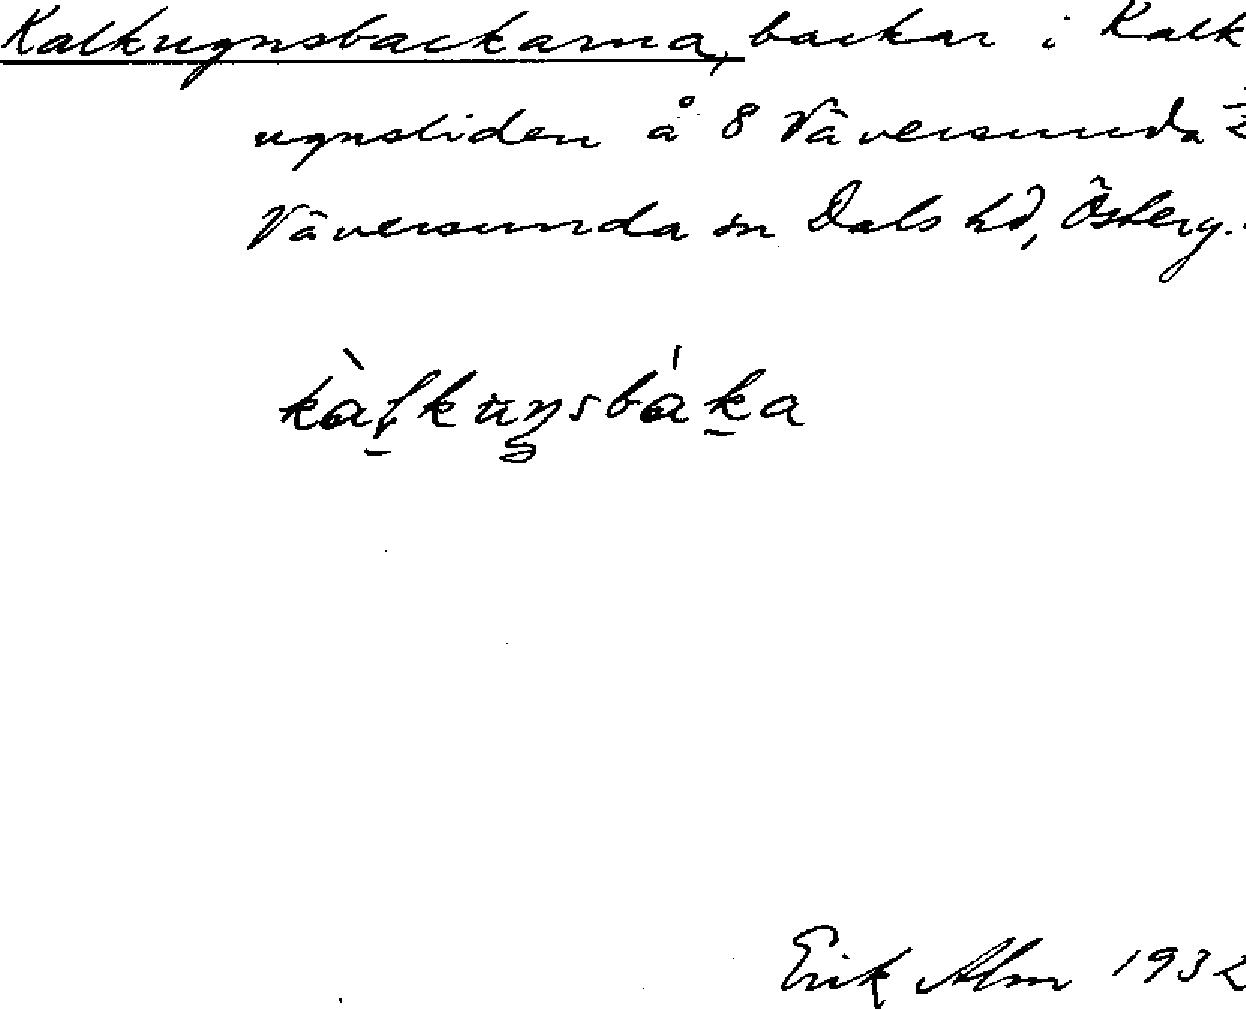 Kalkugnsbackarna, backar i Kalk
ugnsliden å 8 Väversunda
Väversunda sn Dals hd, Österg.
Erik Alm 1932